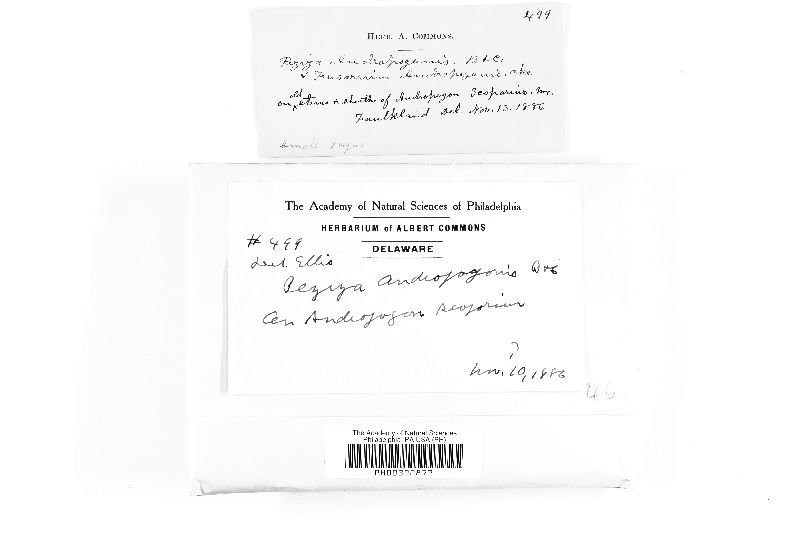 499
HERB. A. COMMONS.
Peziza Andropogonis, B & C.
& Fusarium Andropogonis,
old
on stems & sheaths of Andropogon Scoparius, Mx.
Faulkland Del. Nov. 13. 1886
Small
The Academy of Natural Sciences of Philadelphia
HERBARIUM of ALBERT COMMONS
DELAWARE
# 499
Det. Ellis
Peziza Andropogonis B & C
On Andropogon scoparius
?
Nov. 10, 1886
46
The Academy of Natural Sciences
Philadelphia, PA USA (PH)